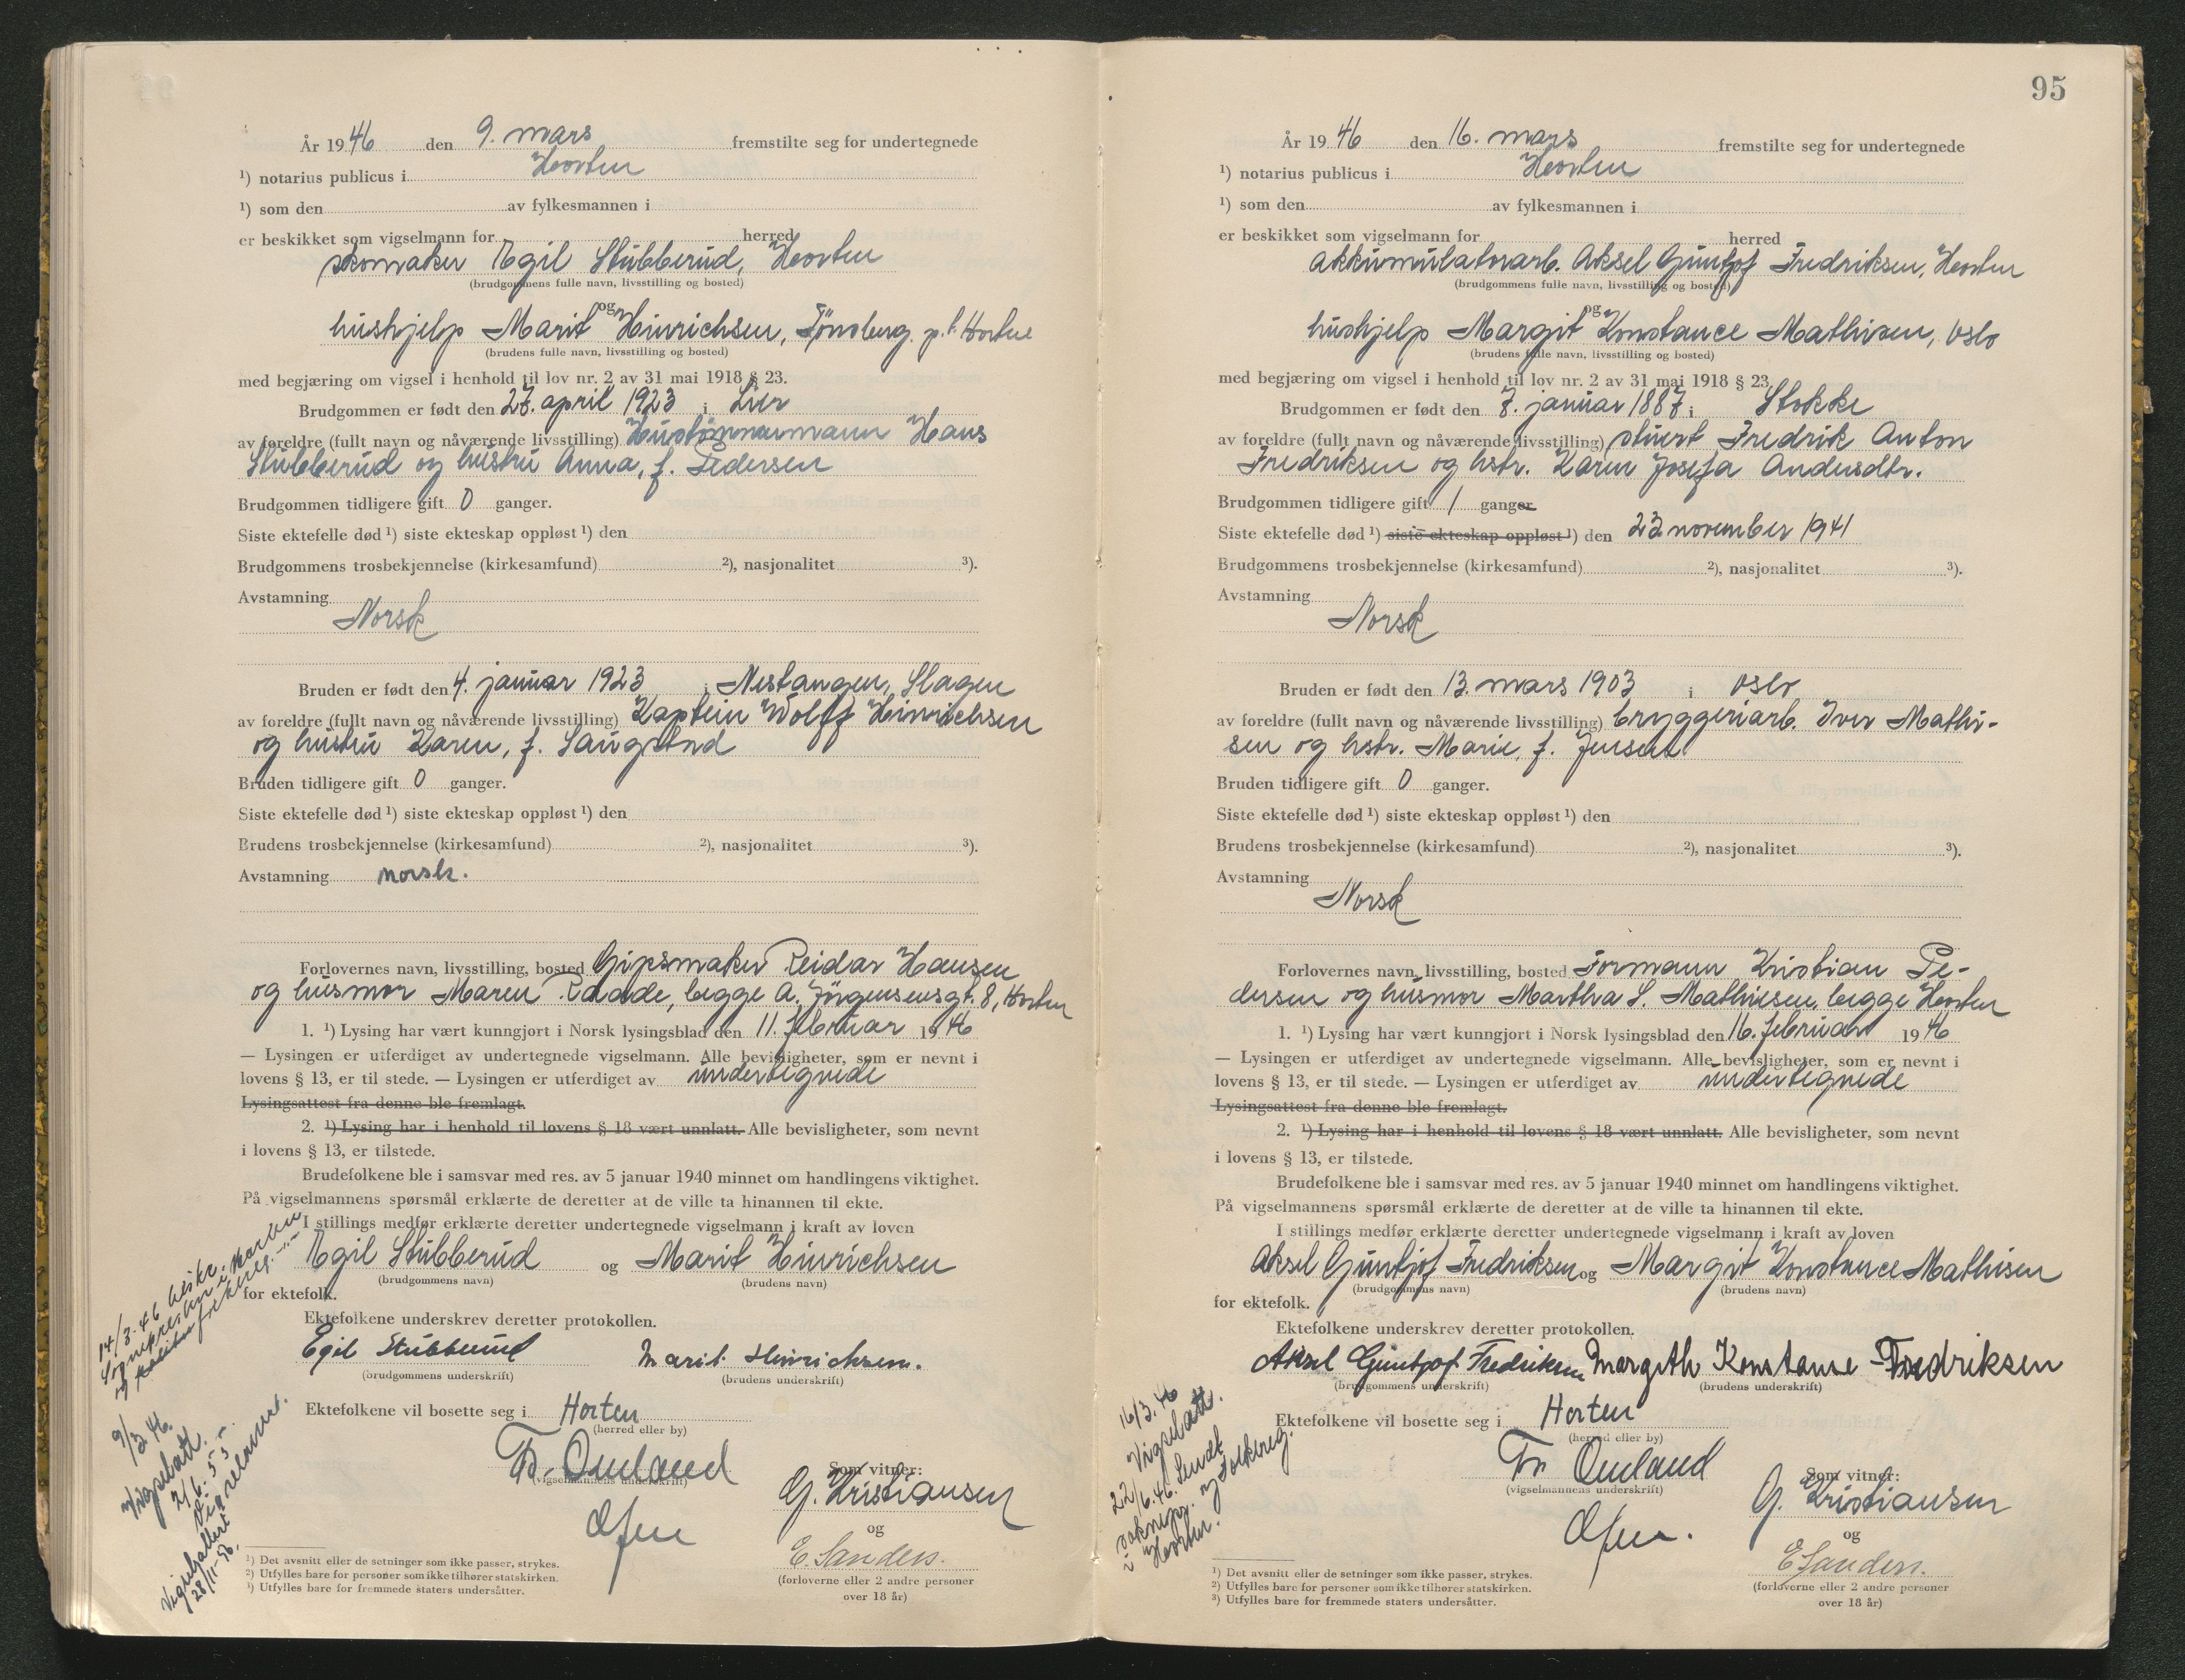 År 1946 den 9. mars fremstilte seg for undertegnede
¹) notarius publicus i Horten
¹) som den av fylkesmannen i
er beskikket som vigselmann for herred
skomaker Egil Stubberud, Horten
(brudgommens fulle navn, livsstilling og bosted)
og
hushjelp Marit Hinrichsen, Tønsberg, p.t. Horten
(brudens fulle navn, livsstilling og bosted)
med begjæring om vigsel i henhold til lov nr. 2 av 31 mai 1918 § 23.
Brudgommen er født den 27. april 1923 i Lier
av foreldre (fullt navn og nåværende livsstilling) Hans
Stubberud og hustru Anna, f. Pedersen
Brudgommen tidligere gift 0 ganger.
Siste ektefelle død ¹) siste ekteskap oppløst ¹) den
Brudgommens trosbekjennelse (kirkesamfund) ²), nasjonalitet ³).
Avstamning
Norsk
Bruden er født den 4. januar 1923 i Nestangen, Slagen
av foreldre (fullt navn og nåværende livsstilling) Kaptein Wolff Hinrichsen
og hustru Karen, f. Saugstad
Bruden tidligere gift 0 ganger.
Siste ektefelle død ¹) siste ekteskap oppløst ¹) den
Brudens trosbekjennelse (kirkesamfund) ²), nasjonalitet ³).
Avstamning norsk.
Forlovernes navn, livsstilling, bosted Gipsmaker Reidar Hansen
og husmor Maren Raade, begge A. Jörgensensgt. 8, Horten
1. ¹) Lysing har vært kunngjort i Norsk lysingsblad den 11. februar 1946
— Lysingen er utferdiget av undertegnede vigselmann. Alle bevisligheter, som er nevnt i
lovens § 13, er til stede. — Lysingen er utferdiget av undertegnede
Lysingsattest fra denne ble fremlagt.
2. ¹) Lysing har i henhold til lovens § 18 vært unnlatt. Alle bevisligheter, som nevnt
i lovens § 13, er tilstede.
Brudefolkene ble i samsvar med res. av 5 januar 1940 minnet om handlingens viktighet.
På vigselmannens spørsmål erklærte de deretter at de ville ta hinannen til ekte.
I stillings medfør erklærte deretter undertegnede vigselmann i kraft av loven
Egil Stubberud og Marit Hinrichsen
(brudgommens navn) (brudens navn)
for ektefolk.
Ektefolkene underskrev deretter protokollen.
Egil Stubberud Marit Hinrichsen.
(brudgommens underskrift) (brudens underskrift)
Ektefolkene vil bosette seg i Horten
(herred eller by)
Fr. Omland
(vigselmannens underskrift)
Som vitner:
G. Kristiansen
og
E. Sanders.
(forloverne eller 2 andre personer
over 18 år)
14/3-46 beskr.
sognepresten i Horten
og folkereg.
9/3 46.
Vigselatt.
2/6-53
Vigselsattest
28/11-56.
¹) Det avsnitt eller de setninger som ikke passer, strykes.
²) Utfylles bare for personer som ikke tilhører statskirken.
³) Utfylles bare for fremmede staters undersåtter.
95
År 1946 den 16. mars fremstilte seg for undertegnede
¹) notarius publicus i Horten
¹) som den av fylkesmannen i
er beskikket som vigselmann for herred
akkumulatorarb. Aksel Guntjof Fredriksen, Horten
(brudgommens fulle navn, livsstilling og bosted)
og
hushjelp Margit Konstance Mathisen, Oslo
(brudens fulle navn, livsstilling og bosted)
med begjæring om vigsel i henhold til lov nr. 2 av 31 mai 1918 § 23.
Brudgommen er født den 7. januar 1887 i Stokke
av foreldre (fullt navn og nåværende livsstilling) stuert Fredrik Anton
Fredriksen og hstr. Karen Josefa Andersdtr.
Brudgommen tidligere gift 1 ganger
Siste ektefelle død ¹) siste ekteskap oppløst ¹) den 23 november 1941
Brudgommens trosbekjennelse (kirkesamfund) ²), nasjonalitet ³).
Avstamning
Norsk
Bruden er født den 13. mars 1903 i Oslo
av foreldre (fullt navn og nåværende livsstilling) bryggeriarb. Iver Mathi-
sen og hstr. Marie, f. Jensen
Bruden tidligere gift 0 ganger.
Siste ektefelle død ¹) siste ekteskap oppløst ¹) den
Brudens trosbekjennelse (kirkesamfund) ²), nasjonalitet ³).
Avstamning
Norsk
Forlovernes navn, livsstilling, bosted Formann Kristian Pe-
dersen og husmor Martha S. Mathisen, begge Horten
1. ¹) Lysing har vært kunngjort i Norsk lysingsblad den 16. februar 1946
— Lysingen er utferdiget av undertegnede vigselmann. Alle bevisligheter, som er nevnt i
lovens § 13, er til stede. — Lysingen er utferdiget av undertegnede
Lysingsattest fra denne ble fremlagt.
2. ¹) Lysing har i henhold til lovens § 18 vært unnlatt. Alle bevisligheter, som nevnt
i lovens § 13, er tilstede.
Brudefolkene ble i samsvar med res. av 5 januar 1940 minnet om handlingens viktighet.
På vigselmannens spørsmål erklærte de deretter at de ville ta hinannen til ekte.
I stillings medfør erklærte deretter undertegnede vigselmann i kraft av loven
Aksel Guntjof Fredriksen og Margit Konstance Mathisen
(brudgommens navn) (brudens navn)
for ektefolk.
Ektefolkene underskrev deretter protokollen.
Aksel Guntjof Fredriksen Margith Konstanse Fredriksen
(brudgommens underskrift) (brudens underskrift)
Ektefolkene vil bosette seg i Horten
(herred eller by)
Fr Omland
(vigselmannens underskrift)
Som vitner:
G. Kristiansen
og
E Sanders.
(forloverne eller 2 andre personer
over 18 år)
16/3. 46
Vigselatt.
22/6. 46. Sendt
soknepr. og Folkereg.
i Horten.
¹) Det avsnitt eller de setninger som ikke passer, strykes.
²) Utfylles bare for personer som ikke tilhører statskirken.
³) Utfylles bare for fremmede staters undersåtter.